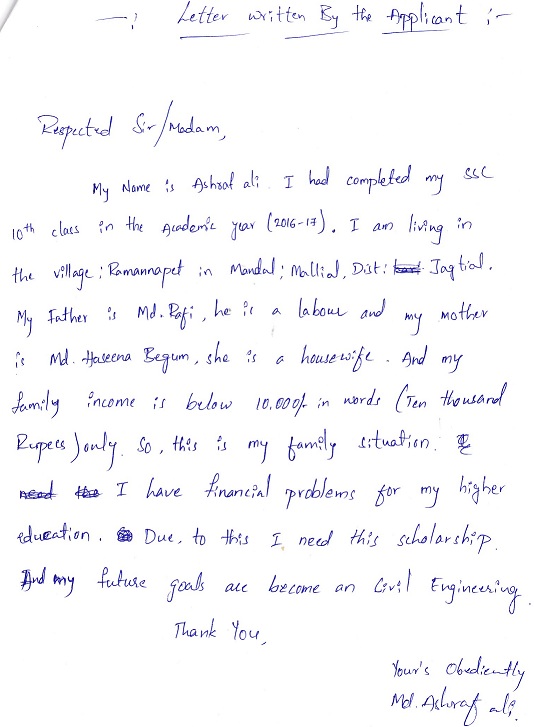 —: Letter written By the Applicant :—
Respected Sir/Madam,
My Name is Ashraf ali. I had completed my SSC
10th class in the Academic year (2016-17). I am living in
the village: Ramannapet in Mandal; Mallial, Dist: Jagtial.
My Father is Md. Rafi, he is a labour and my mother
is Md. Haseena Begum, she is a housewife. And my
family income is below 10,000/- in words (Ten thousand
Rupees) only. So, this is my family situation.
need the I have financial problems for my higher
education. Due, to this I need this scholarship.
And my future goals are become an Civil Engineering.
Thank You,
Your's Obediently
Md. Ashraf ali.